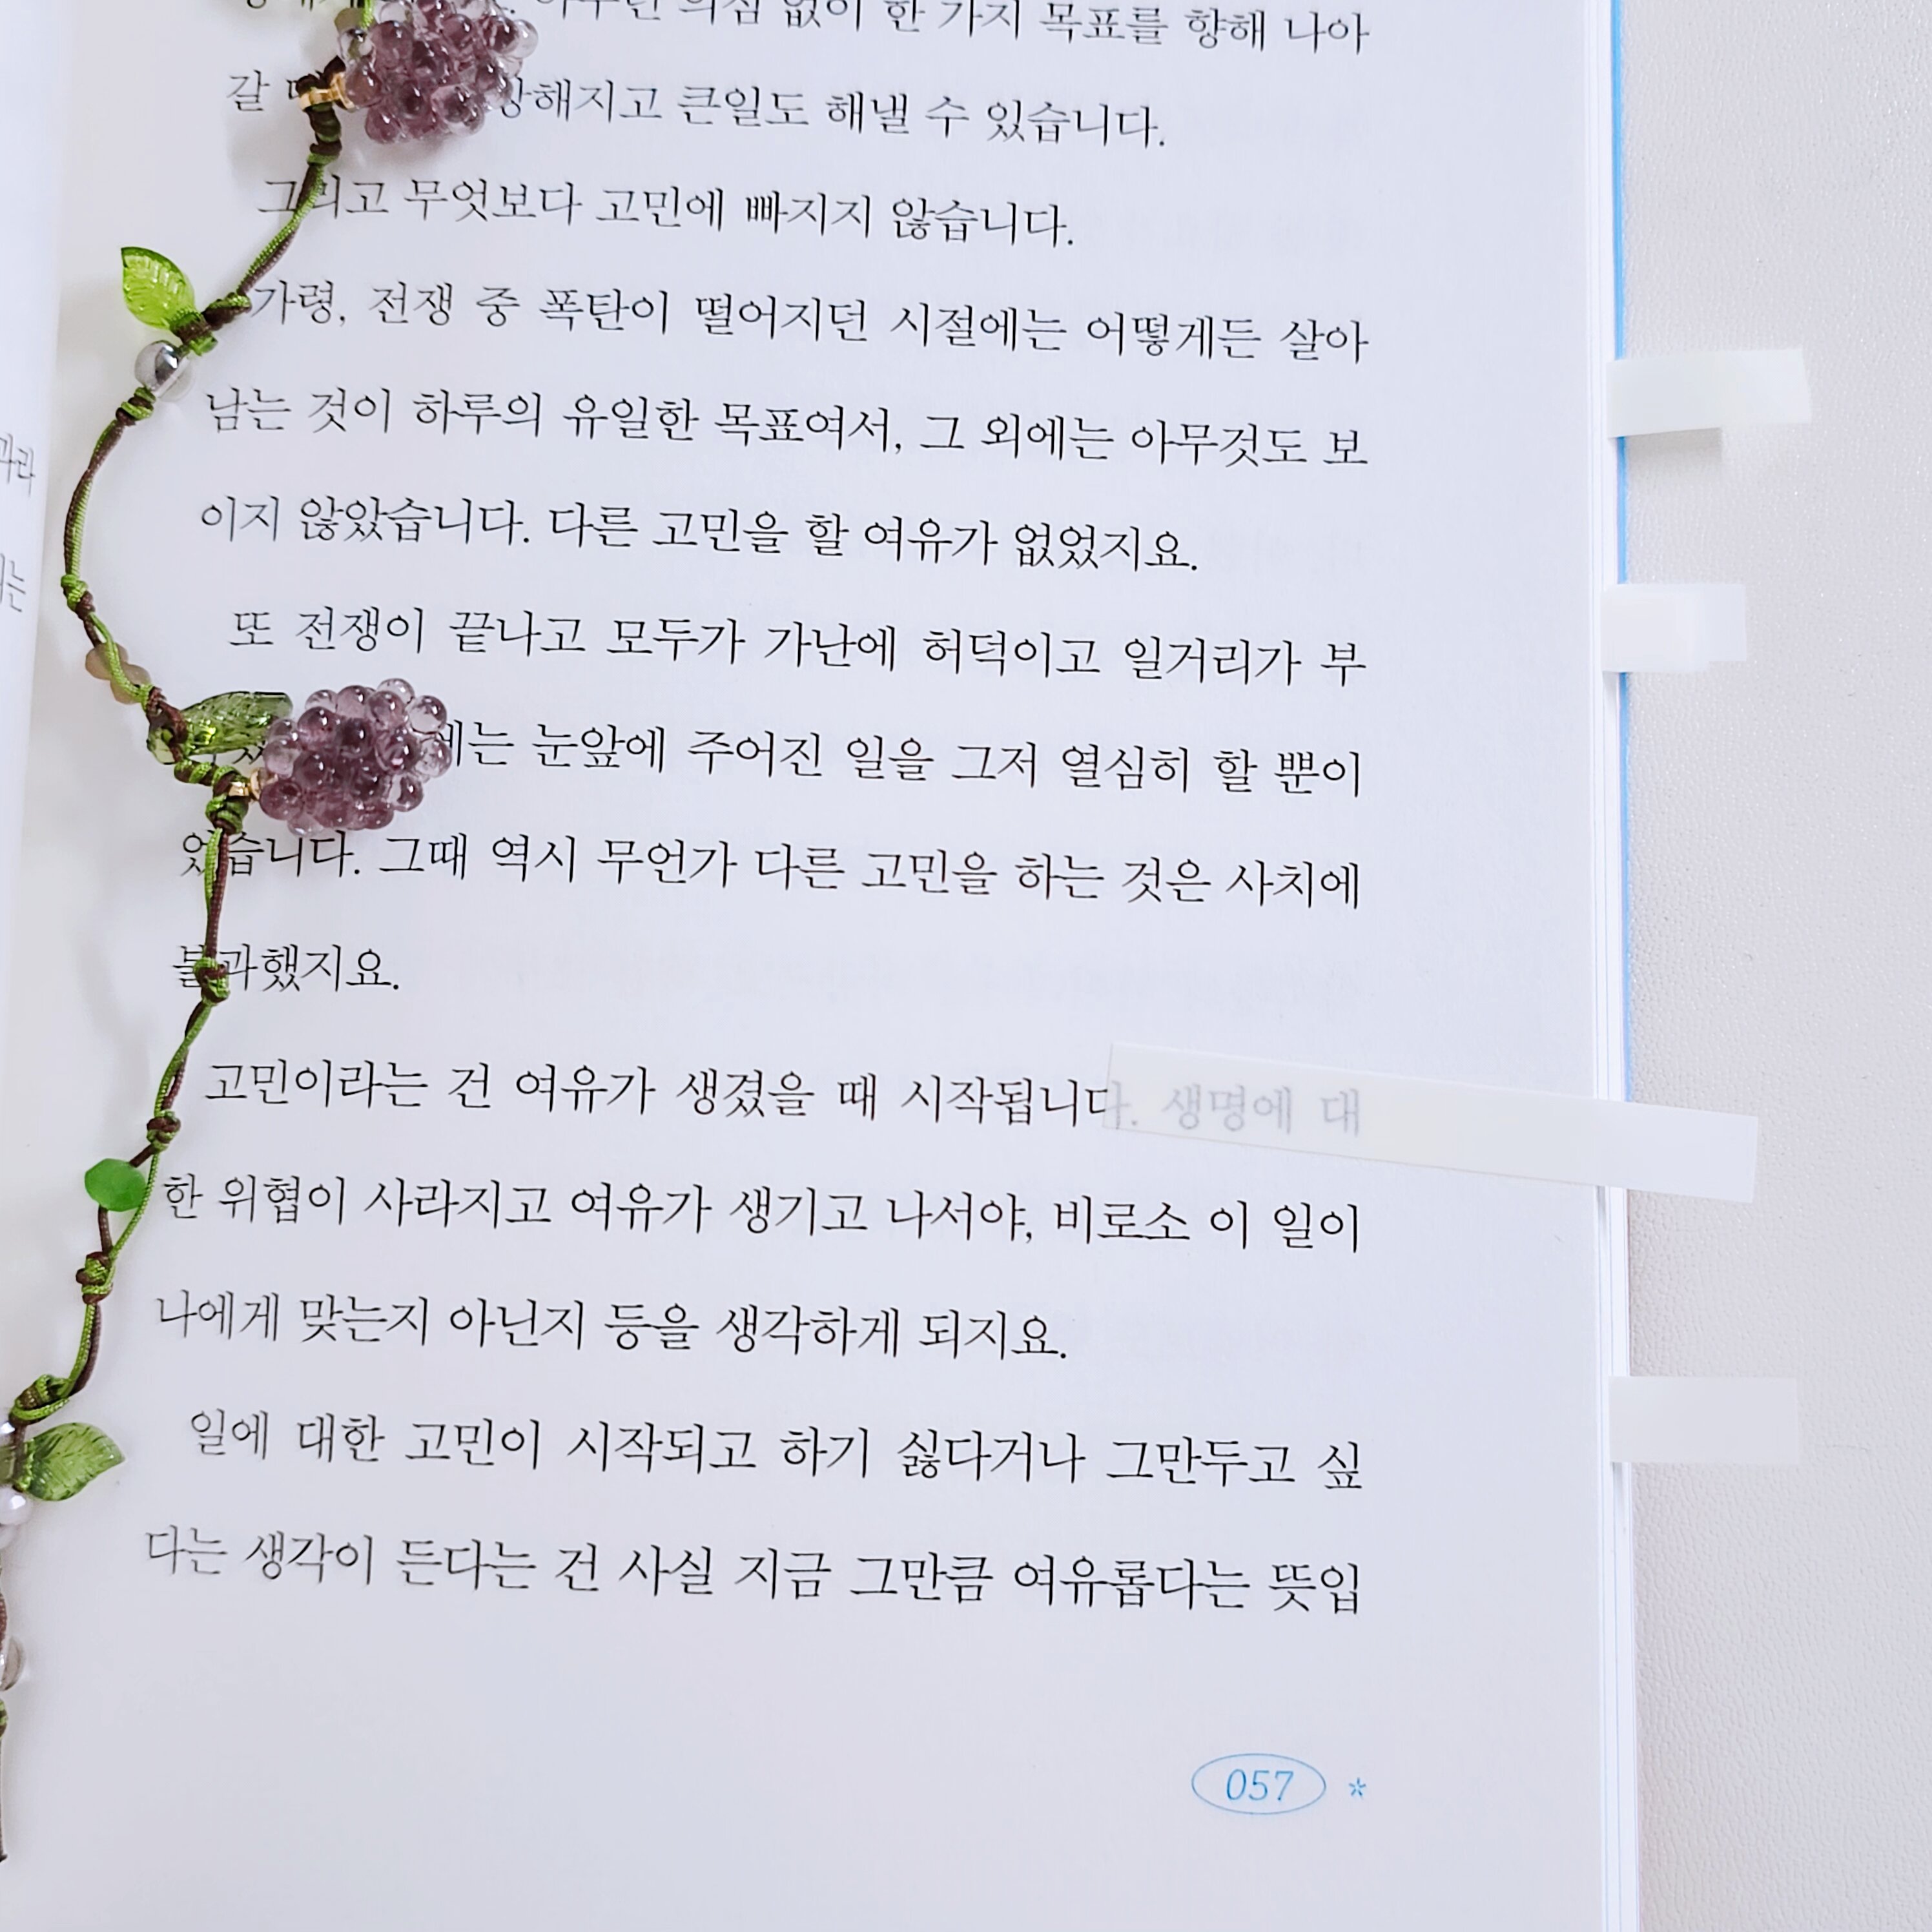 의심 없이 한 가지 목표를 향해 나아
갈 해지고 큰일도 해낼 수 있습니다.
그리고 무엇보다 고민에 빠지지 않습니다.
가령, 전쟁 중 폭탄이 떨어지던 시절에는 어떻게든 살아
남는 것이 하루의 유일한 목표여서, 그 외에는 아무것도 보
이지 않았습니다. 다른 고민을 할 여유가 없었지요.
또 전쟁이 끝나고 모두가 가난에 허덕이고 일거리가 부
는 눈앞에 주어진 일을 그저 열심히 할 뿐이
었습니다. 그때 역시 무언가 다른 고민을 하는 것은 사치에
불과했지요.
고민이라는 건 여유가 생겼을 때 시작됩니다. 생명에 대
한 위협이 사라지고 여유가 생기고 나서야, 비로소 이 일이
나에게 맞는지 아닌지 등을 생각하게 되지요.
일에 대한 고민이 시작되고 하기 싫다거나 그만두고 싶
다는 생각이 든다는 건 사실 지금 그만큼 여유롭다는 뜻입
057 *